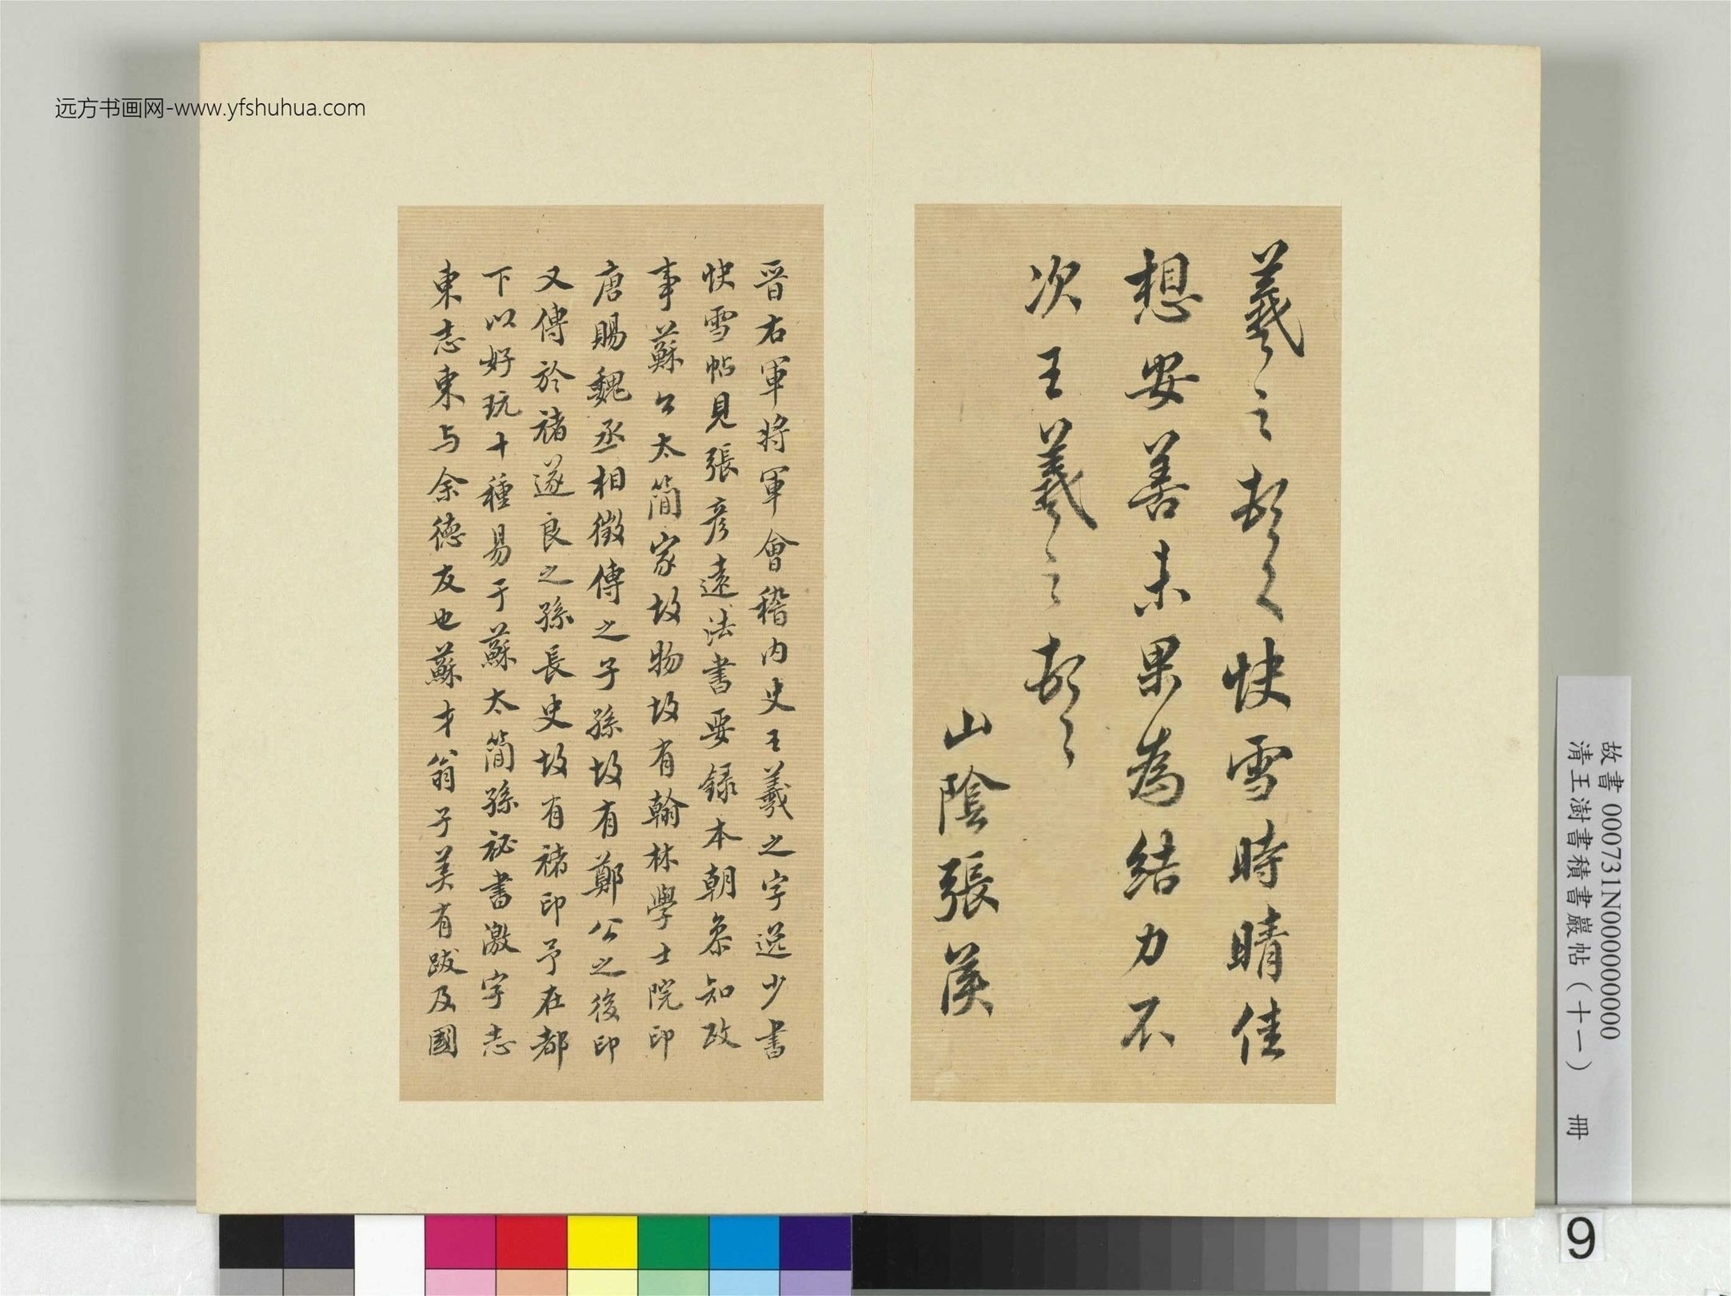 远方书画网-www.yfshuhua.com
羲之頓首快雪時晴佳
想安善未果為結力不
次王羲之頓首
山陰張侯
晉右軍將軍會稽内史王羲之字逸少書
快雪帖見張彦遠法書要録本朝叅知政
事蘇公太簡家故物故有翰林學士院印
唐賜魏丞相徵傳之子孫故有鄭公之後印
又傳於褚遂良之孫長史故有褚印予在都
下以好玩十種易于蘇太簡孫祕書激字志
東志東与余德友也蘇才翁子美有跋及國
故書 000731N000000000
清王澍書積書巖帖(十一) 冊
9